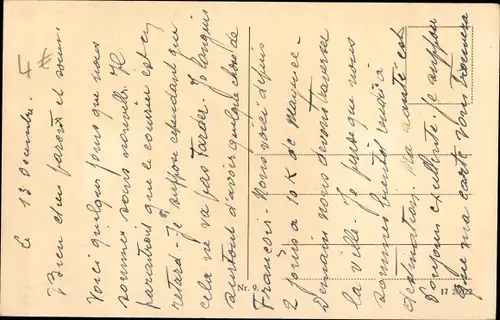 Le 13 Décembre.
Bien chers parents et soeur.
Voici quelques jours que nous
sommes sans nouvelle. Il
paraîtrait que le courrier est en
retard. Je suppose cependant que
cela ne va pas tarder. Je languis
surtout d'avoir quelque chose de
François. Nous voici depuis
2 jours à 10 K de Mayence.
Demain nous devons traverser
la ville. Je pense que nous
sommes bientôt rendis à
destination. Ma santé est
toujours excellente. Je suppose
que ma carte vous trouvera
Nr. 9.
17 2022